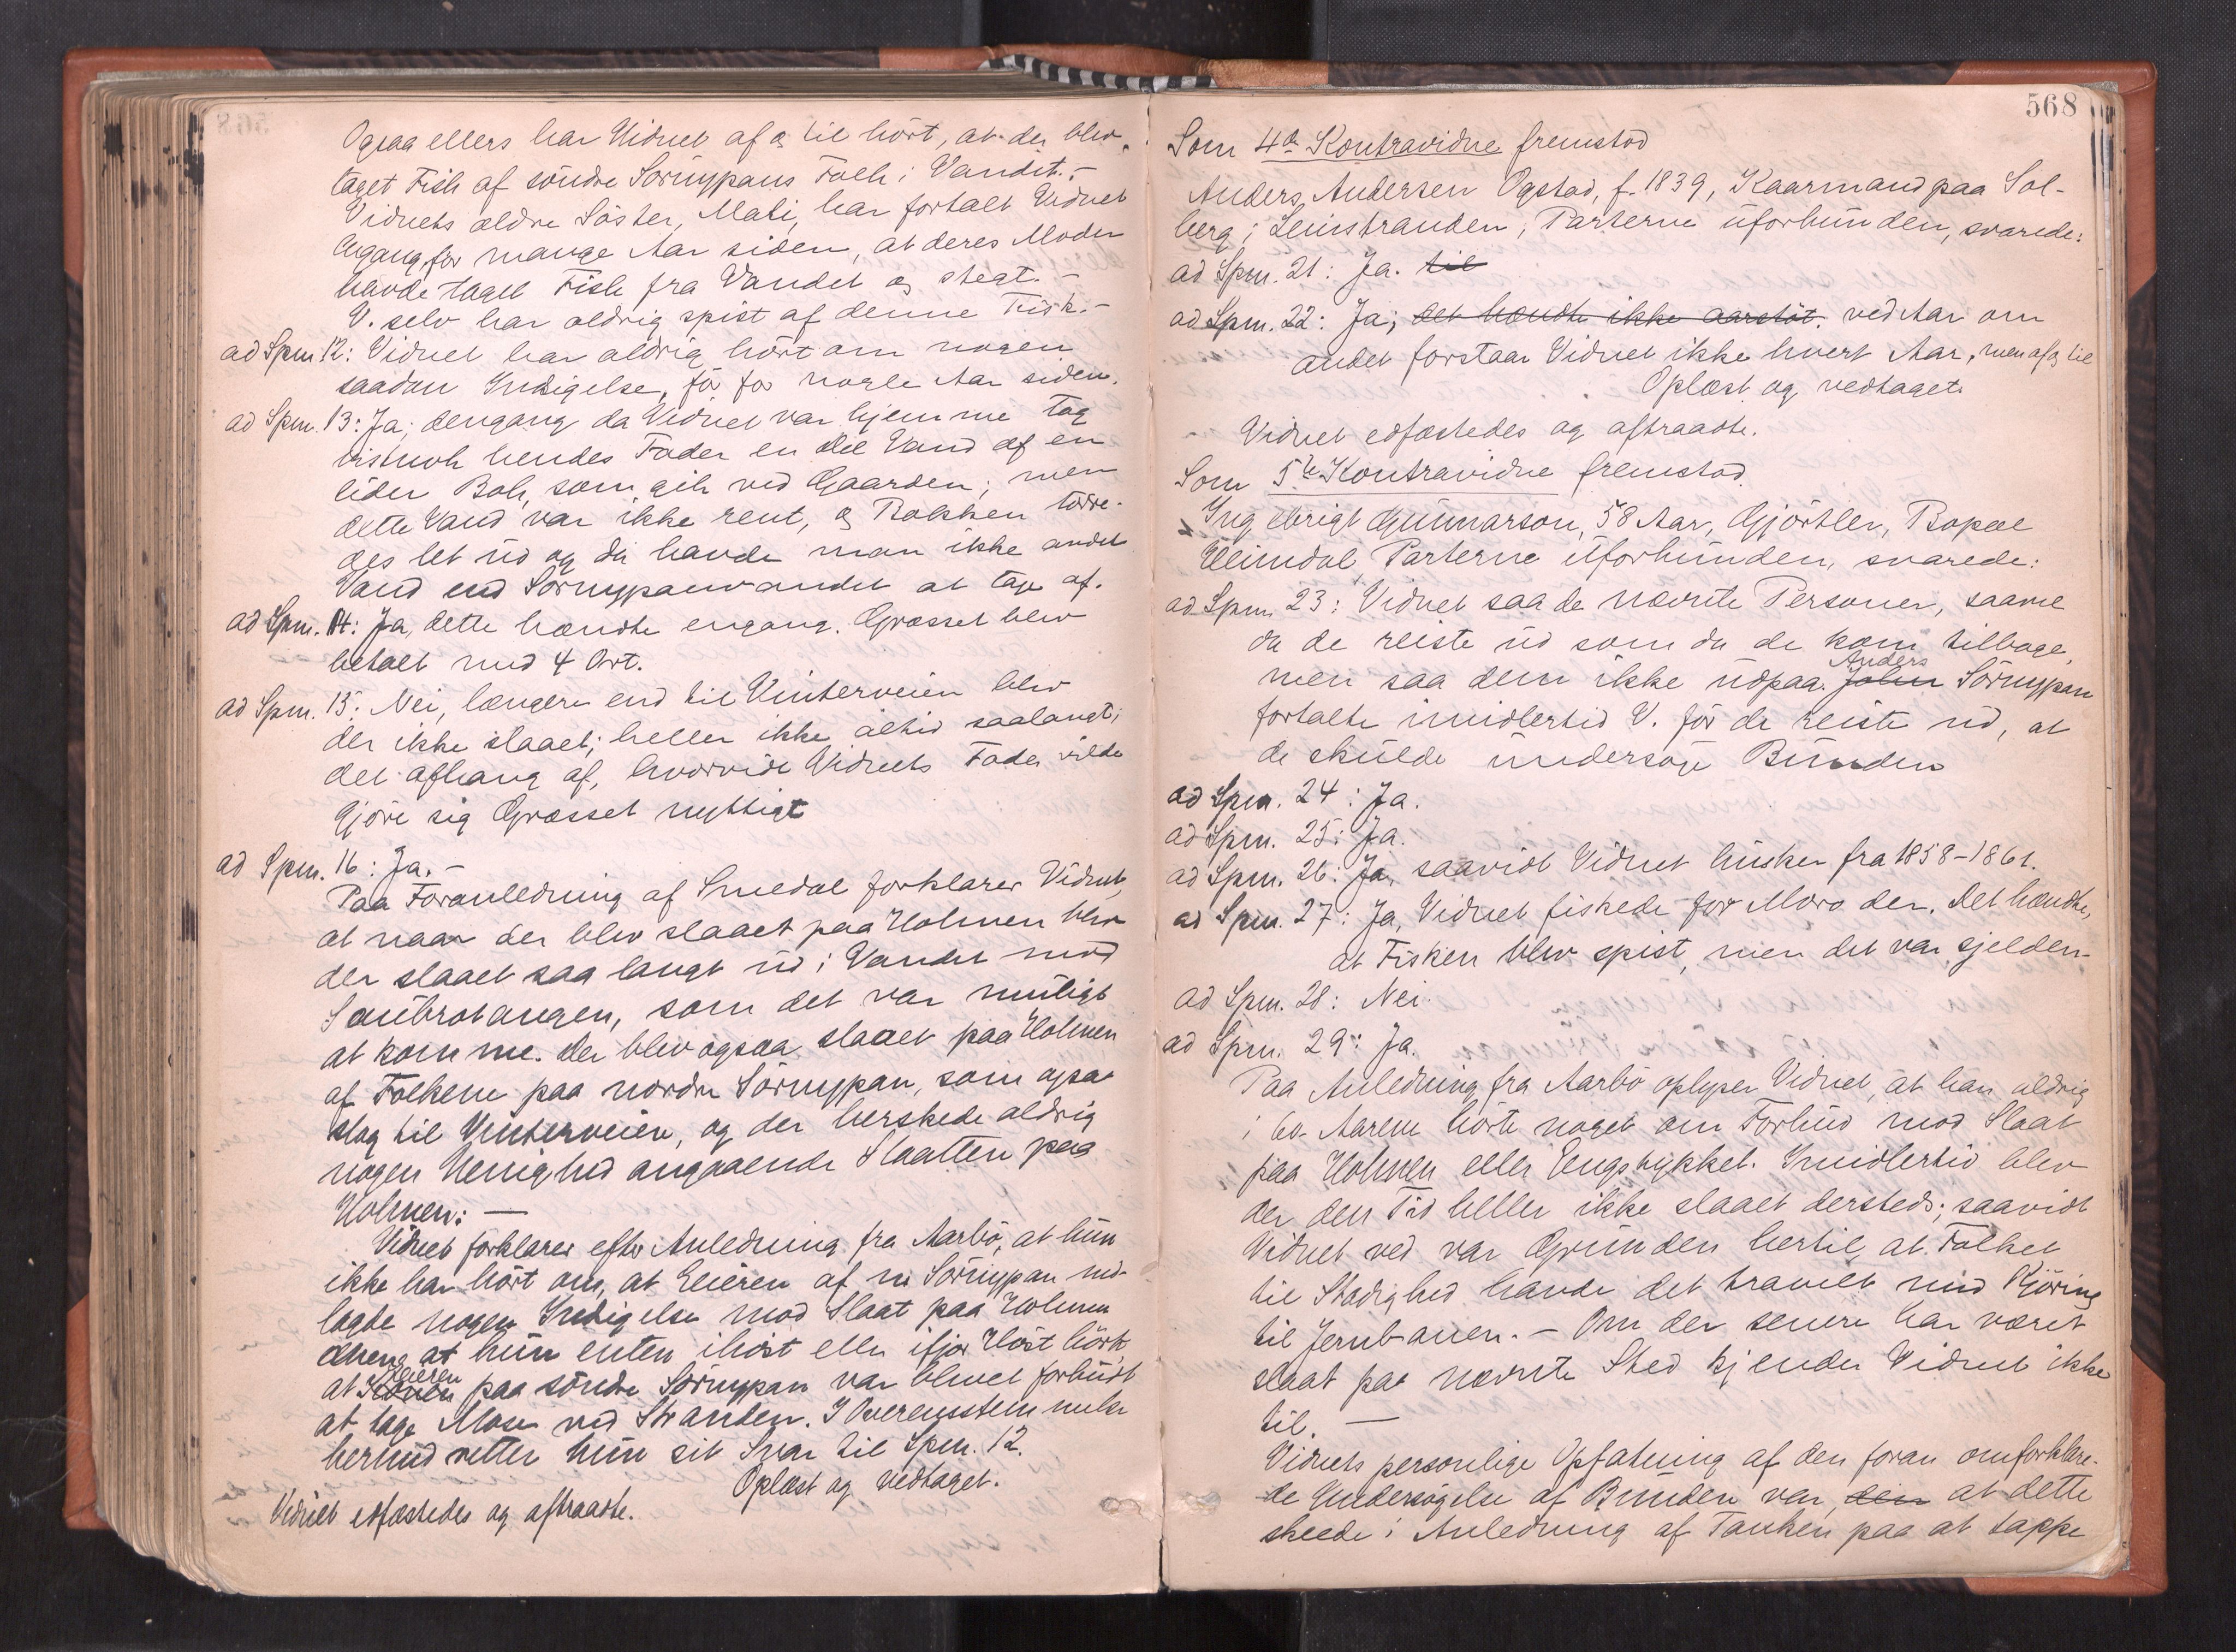 Ogsaa ellers har Vidnet af og til hört, at der blev
taget Fisk af söndre Sörnypans Folk i Vandet.-
Vidnets ældre Söster, Mali, har fortalt Vidnet
engang for mange Aar siden, at deres Moder
havde taget Fisk fra Vandet og stegt.-
V. selv har aldrig spist af denne Fisk.-
ad Spm 12: Vidnet har aldrig hört om nogen
saadan Indsigelse, för for nogle Aar siden.
ad Spm. 13: Ja; dengang da Vidnet var hjemme tog
vistnok hendes Fader en Del Vand af en
liden Bæk, som gik ved Gaarden; men
dette Vand var ikke rent, og Bækken törre-
des let ud og da havde man ikke andet
Vand end Sörnypanvandet at tage af.
ad Spm. 14: Ja, dette hændte engang. Græsset blev
betalt med 4 Ort.
ad Spm. 15: Nei, længere end til Vinterveien blev
der ikke slaaet; heller ikke altid saalangt;
det afhang af, hvorvidt Vidnets Fader vilde
gjöre sig Græsset nyttigt
ad Spm. 16: Ja.-
Paa Foranledning af Smedal forklarer Vidnet,
at naar der blev slaaet paa Holmen blev
der slaaet saa langt ud i Vandet mod
Saubrotangen, som det var muligt
at komme. Der blev ogsaa slaaet paa Holmen
af Folkene paa nordre Sörnypan, som ogsaa
slog til Vinterveien, og der herskede aldrig
nogen Uenighed angaaende Slaatten paa
Holmen: —
Vidnet forklarer efter Anledning fra Aarbö, at hun
ikke har hört om, at Eieren af n. Sörnypan ned-
lagde nogen Indsigelse mod Slaat paa Holmen
at hun enten ihöst eller ifjor Höst hörte
Eieren
at paa söndre Sörnypan var blevet forbudt
at tage Mose ved Stranden. I Overensstemmelse
hermed retter hun sit Svar til Spm. 12.
Oplæst og vedtaget.
Vidnet edfæstedes og aftraadte.
568
Som 4de Kontravidne fremstod
Anders Andersen Ogstad, f. 1839, Kaarmand paa Sol-
berg i Leinstranden, Parterne uforbunden, svarede:
ad Spm. 21: Ja. til
ad Spm. 22: Ja; det hændte ikke aarstöt. ved Aar om
andet forstaar Vidnet ikke hvert Aar, men af og til
Oplæst og vedtaget.
Vidnet edfæstedes og aftraadte.
Som 5te Kontravidne fremstod
Ingebrigt Gunnarson, 58 Aar, Gjörtler, Bopæl
Heimdal, Parterne uforbunden, svarede:
ad Spm. 23: Vidnet saa de nævnte Personer, saavel
da de reiste ud som da de kom tilbage,
Anders
men saa dem ikke udpaa. John Sörnypan
fortalte imidlertid V. för de reiste ud, at
de skulde undersöge Bunden
ad Spm. 24: Ja.
ad Spm. 25: Ja.
ad Spm. 26: Ja, saavidt Vidnet husker fra 1858-1861.
ad Spm. 27: Ja, Vidnet fiskede for Moro der. Det hændte,
at Fisken blev spist, men det var sjelden-
ad Spm. 28: Nei.
ad Spm. 29: Ja.
Paa Anledning fra Aarbö oplyser Vidnet, at han aldrig
i 60-Aarene hörte noget om Forbud mod Slaat
paa Holmen eller Engstykket. Imidlertid blev
der den Tid heller ikke slaaet dersteds; saavidt
Vidnet ved var Grunden hertil, at Folket
til Stadighed havde det travelt med Kjöring
til Jernbanen. - Om der senere har været
slaat paa nævnte Sted kjender Vidnet ikke
til. —
Vidnets personlige Opfatning af den foran omforklare-
de Undersögelse af Bunden var, den at dette
skeede i Anledning af Tanken paa at tappe